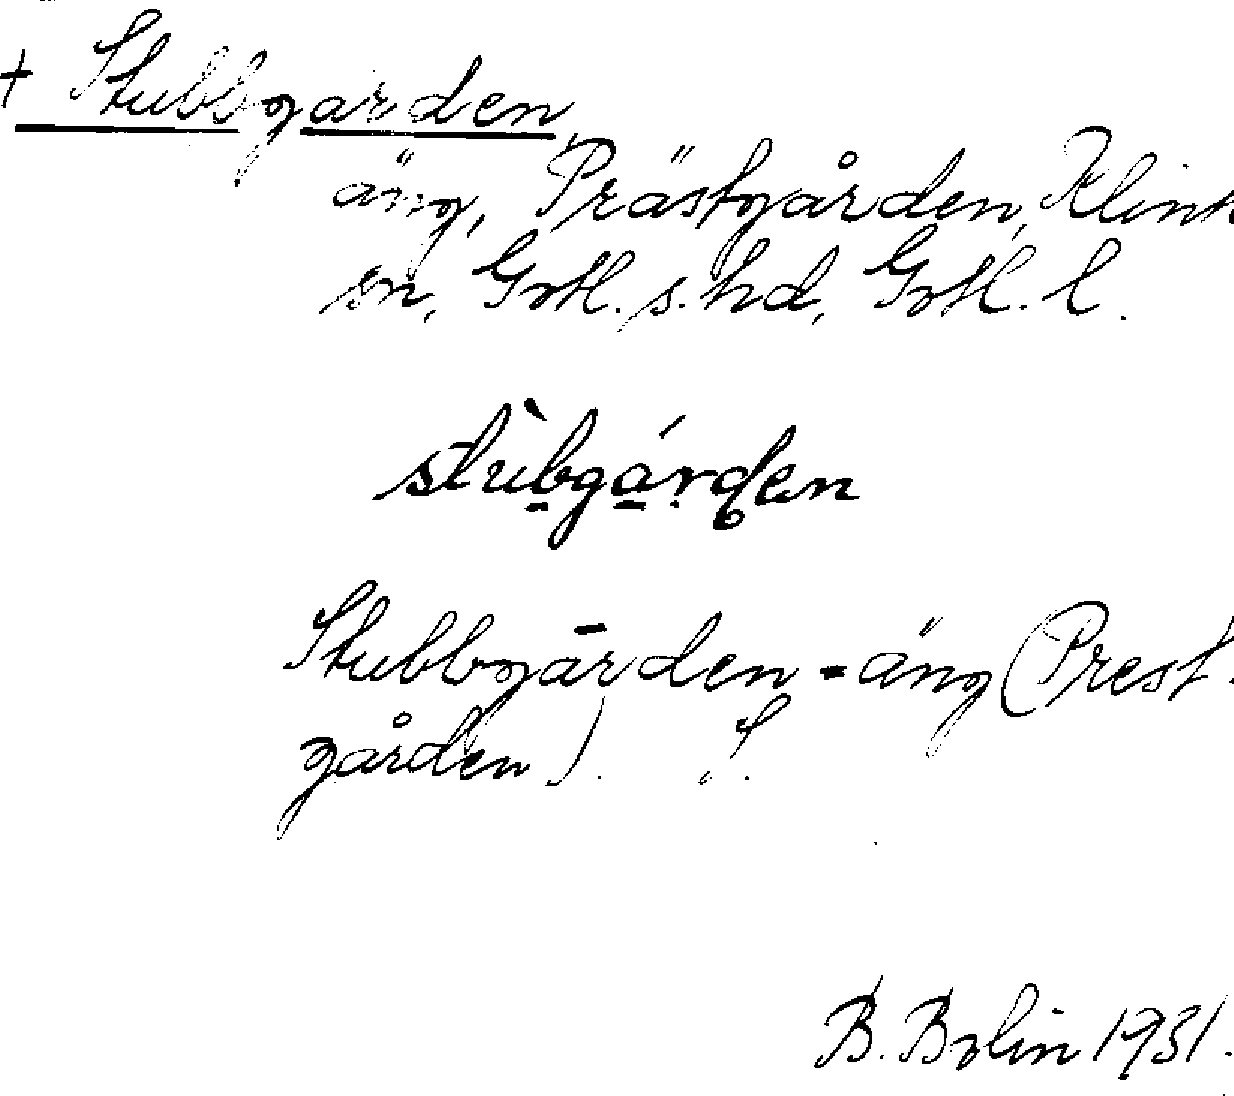 + Stubbgarden,
äng, Prästgården, Klint
sn, Gotl. s. hd, Gotl. l.
stùbgárden
Stubbgārden = äng (Prest-
gården).
B. Bolin 1931.